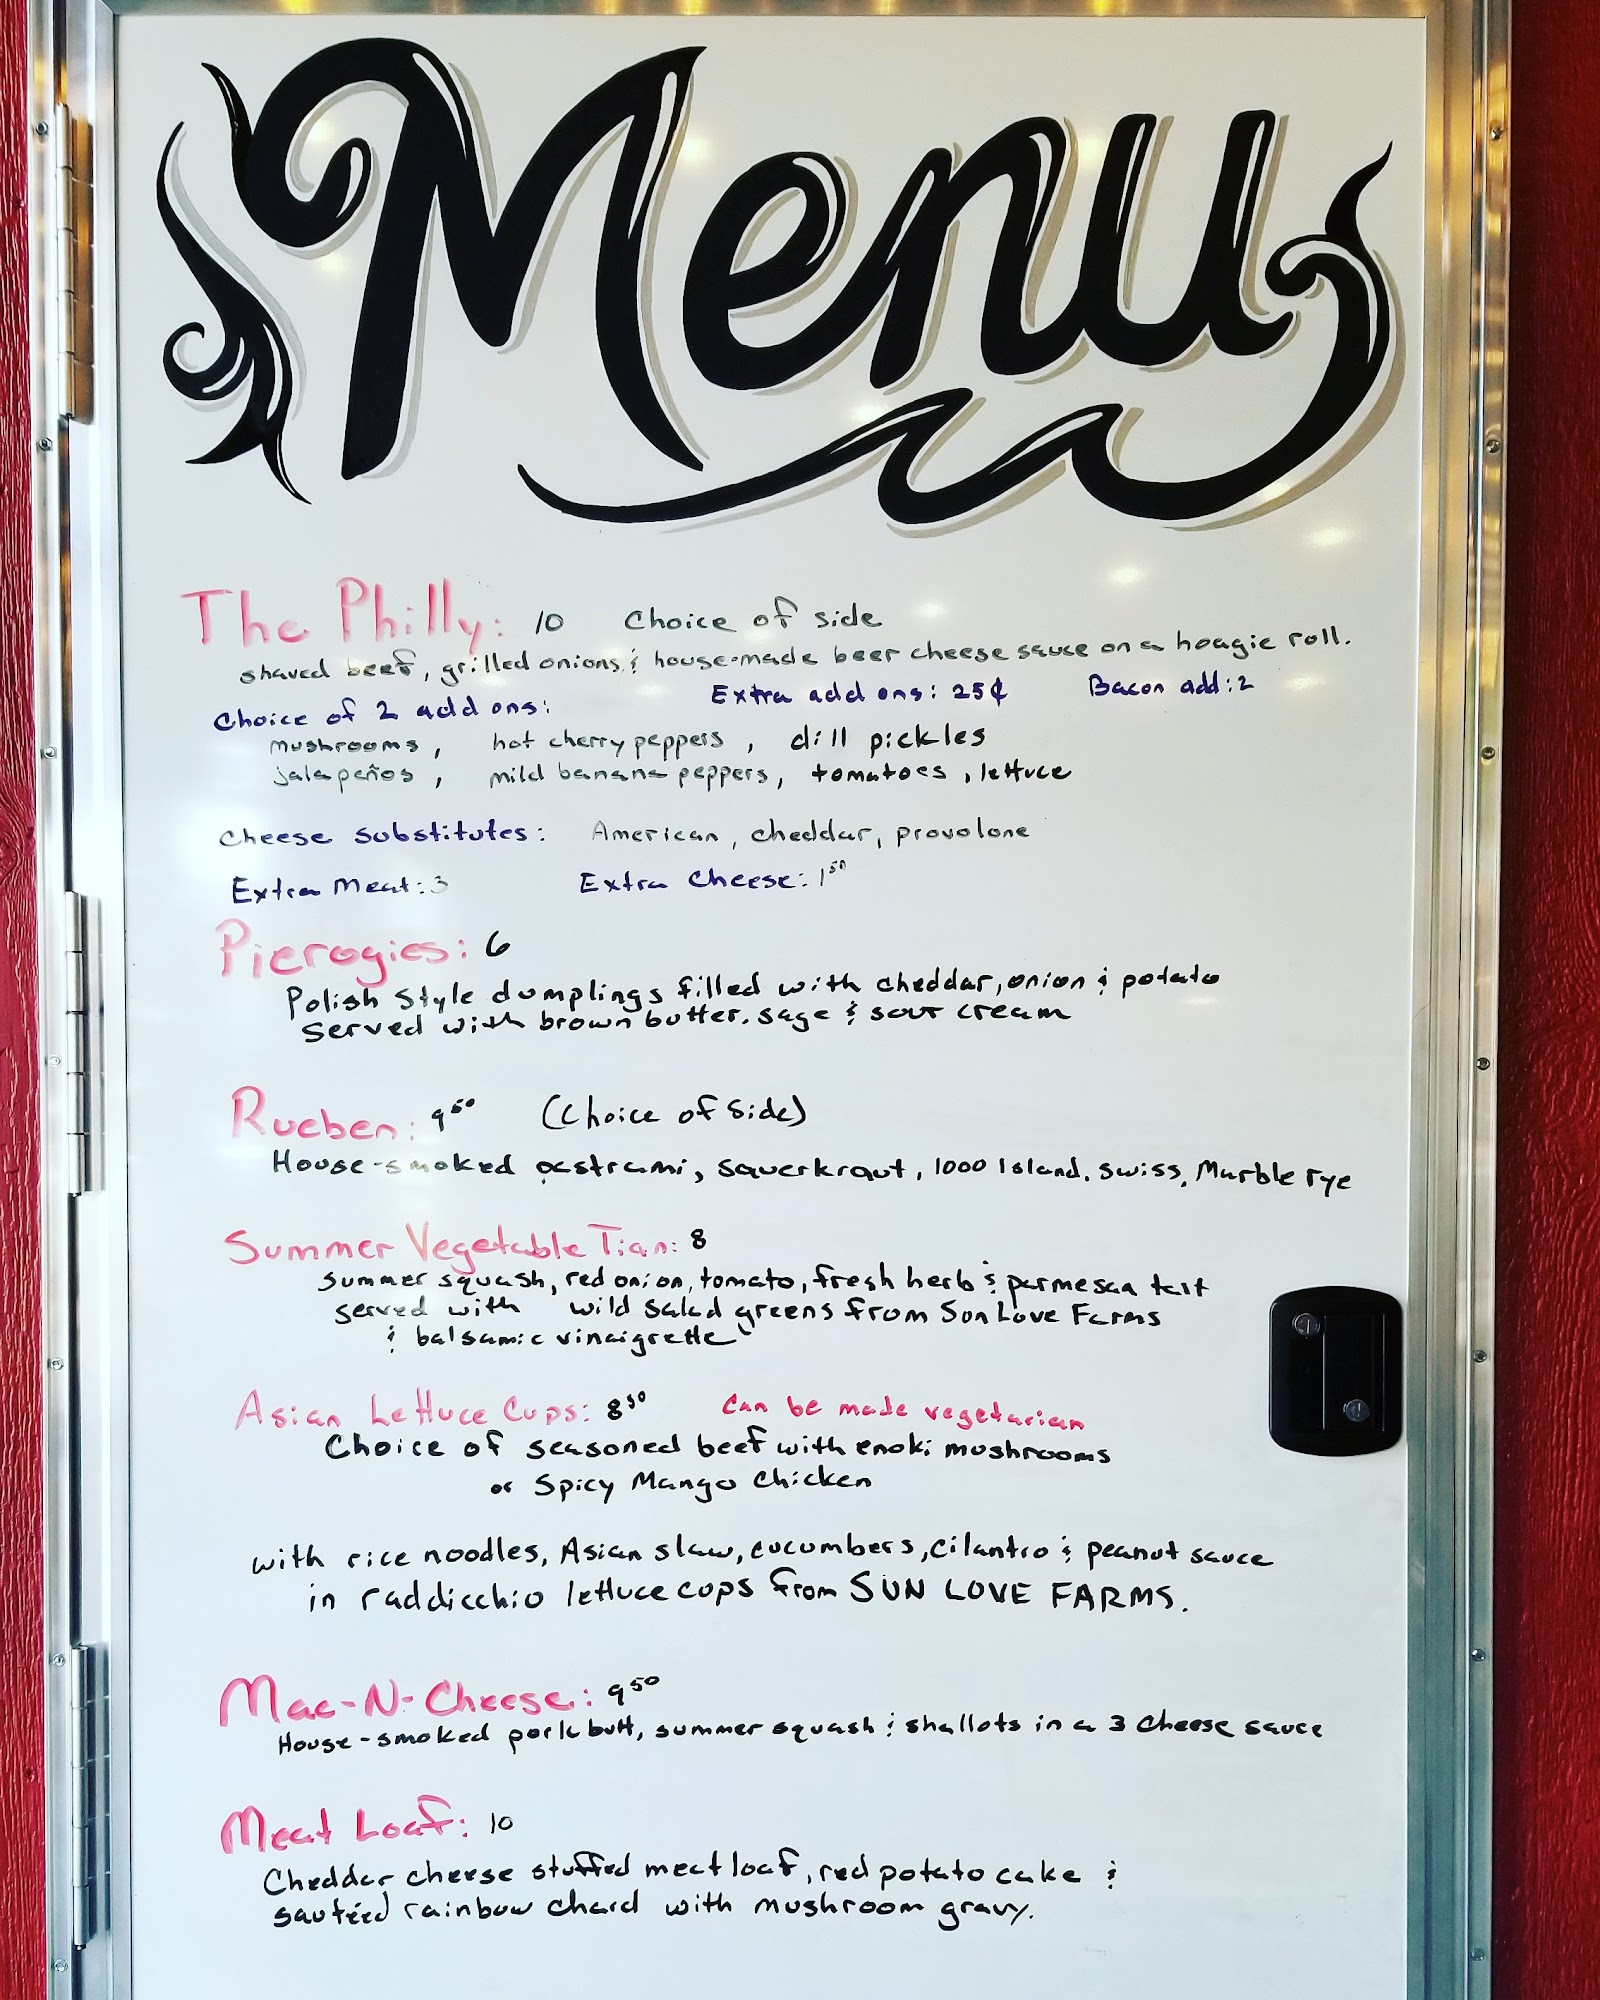 Menu
The Philly: 10 Choice of side
shaved beef, grilled onions & house-made beer cheese sauce on a hoagie roll.
Choice of 2 add ons: Extra add ons: 25¢ Bacon add: 2
mushrooms, hot cherry peppers, dill pickles
jalapeños, mild banana peppers, tomatoes, lettuce
Cheese substitutes: American, cheddar, provolone
Extra Meat: 3 Extra Cheese: 1⁵⁰
Pierogies: 6
Polish Style dumplings filled with cheddar, onion & potato
Served with brown butter, sage & sour cream
Rueben: 9⁵⁰ (Choice of Side)
House-smoked pastrami, sauerkraut, 1000 Island, Swiss, Marble rye
Summer Vegetable Tian: 8
Summer squash, red onion, tomato, fresh herb & parmesan tart
served with wild salad greens from Sun Love Farms
& balsamic vinaigrette
Asian Lettuce Cups: 8⁵⁰ Can be made vegetarian
Choice of seasoned beef with enoki mushrooms
or Spicy Mango Chicken
with rice noodles, Asian slaw, cucumbers, cilantro & peanut sauce
in raddicchio lettuce cups from SUN LOVE FARMS.
Mac-N-Cheese: 9⁵⁰
House-smoked pork butt, summer squash & shallots in a 3 cheese sauce
Meat Loaf: 10
Cheddar cheese stuffed meat loaf, red potato cake &
sautéed rainbow chard with mushroom gravy.